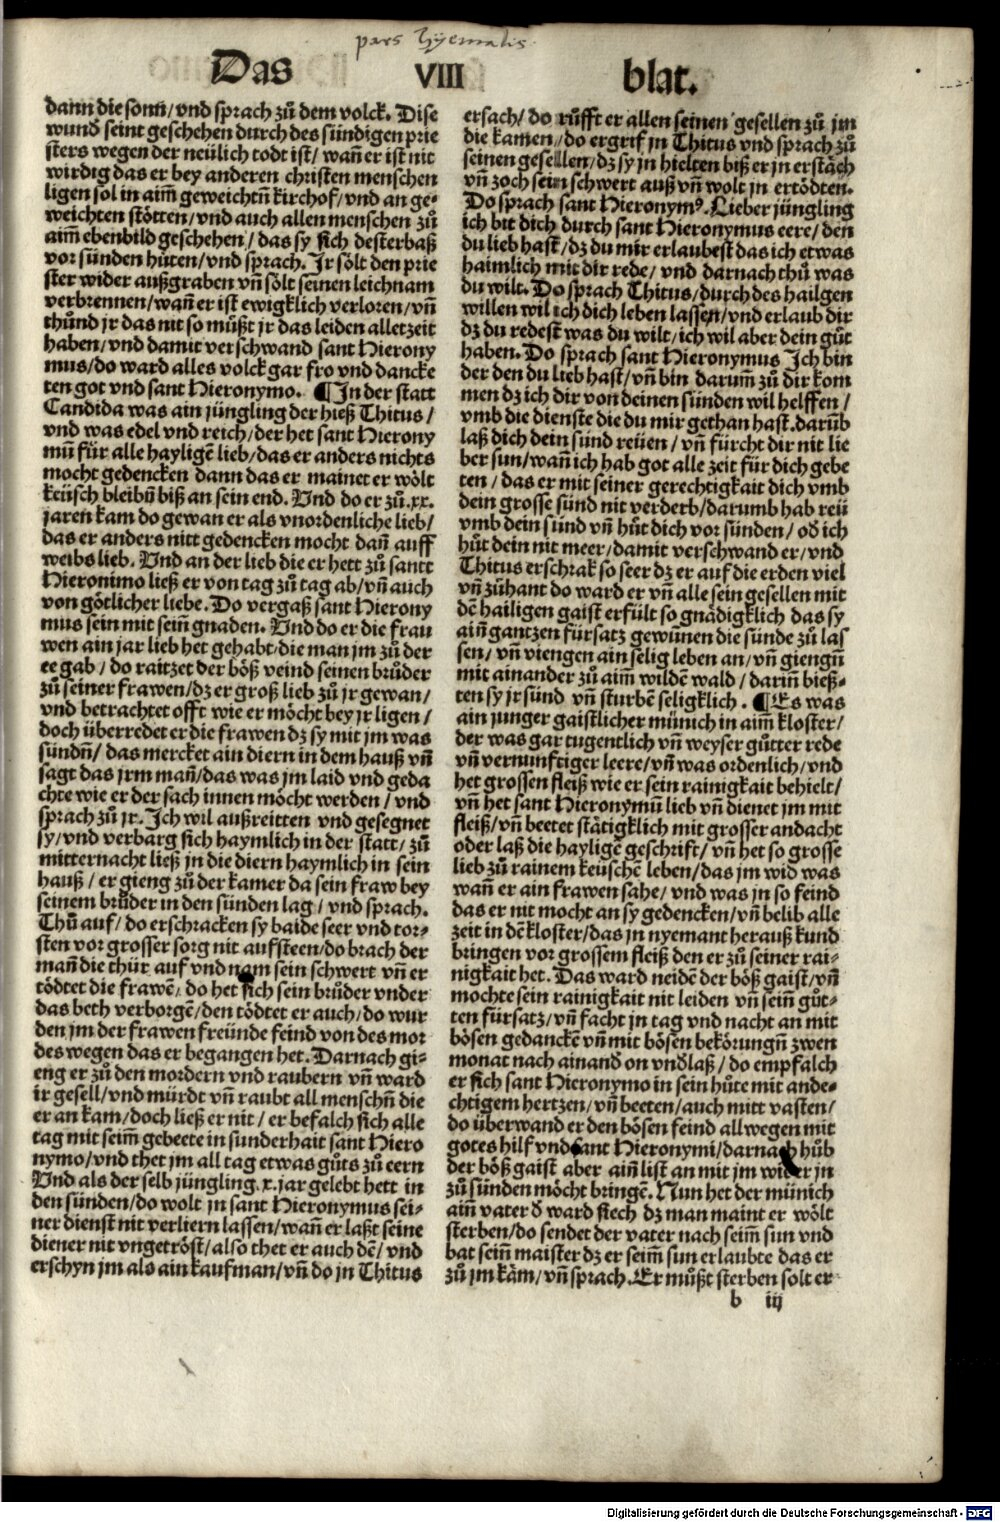 pars hyemalis
Das VIII blat.
dann die sonn/vnd sprach zů dem volck. Dise
wund seint geschehen durch des sündigen prie
sters wegen der neülich todt ist/ wañ er ist nit
wirdig das er bey anderen christen menschen
ligen sol in aim̄ geweichtñ kirchof/vnd an ge⸗
weichten stötten/vnd auch allen menschen zů
aim̄ ebenbild geschehen/ das sy sich desterbaß
vor sünden hüten/vnd sprach. Ir sölt den prie
ster wider außgraben vñ sölt seinen leichnam
verbrennen/wañ er ist ewigklich verloren/vñ
thünd jr das nit so müßt jr das leiden alle zeit
haben/vnd damit verschwand sant Hierony
mus/do ward alles volck gar fro vnd dancke
ten got vnd sant Hieronymo. ¶In der statt
Candida was ain jüngling der hieß Thitus/
vnd was edel vnd reich/der het sant Hierony
mū für alle haylige̅ lieb/das er anders nichts
mocht gedencken dann das er mainet er wölt
keüsch bleibñ biß an sein end. Vnd do er zů.xx.
jaren kam do gewan er als vnordenliche lieb/
das er anders nitt gedencken mocht dañ auff
weibs lieb. Vnd an der lieb die er hett zů santt
Hieronimo ließ er von tag zů tag ab/vñ auch
von götlicher liebe. Do vergaß sant Hierony
mus sein mit sein̄ gnaden. Vnd do er die frau
wen ain jar lieb het gehabt/die man jm zů der
ee gab/ do raitzet der böß veind seinen brůder
zů seiner frawen/dz er groß lieb zů jr gewan/
vnd betrachtet offt wie er möcht bey jr ligen/
doch überredet er die frawen dz sy mit jm was
sündñ/ das mercket ain diern in dem hauß vñ
sagt das jrm mañ/das was jm laid vnd geda
chte wie er der sach innen möcht werden/ vnd
sprach zů jr. Ich wil außreitten vnd gesegnet
sy/vnd verbarg sich haymlich in der statt/ zů
mitternacht ließ jn die diern haymlich in sein
hauß/ er gieng zů der kamer da sein fraw bey
seinem brůder in den sünden lag/ vnd sprach.
Thů auf/ do erschracken sy baide seer vnd tor⸗
sten vor grosser sorg nit aufsteen/do brach der
mañ die thür auf vnd nam sein schwert vñ er
tödtet die frawe̅/ do het sich sein brůder vnder
das beth verborge̅/den tödtet er auch/do wur
den jm der frawen freünde feind von des mor
des wegen das er begangen het. Darnach gi⸗
eng er zů den mordern vnd raubern vñ ward
ir gesell/vnd mürdt vñ raubt all menschñ die
er an kam/doch ließ er nit/ er befalch sich alle
tag mit seim̄ gebeete in sunderhait sant Hiero
nymo/vnd thet jm all tag etwas gůts zů eern
Vnd als der selb jüngling.x.jar gelebt hett in
den sünden/do wolt jn sant Hieronymus sei⸗
ner dienst nit verliern lassen/wañ er laßt seine
diener nit vngetröst/also thet er auch de̅/ vnd
erschyn jm als ain kaufman/vñ do jn Thitus
ersach/ do růfft er allen seinen gesellen zů jm
die kamen/ do ergrif jn Thitus vnd sprach zů
seinen gesellen/dz sy jn hielten biß er jn erstäch
vñ zoch sein schwert auß vñ wolt jn ertödten.
Do sprach sant Hieronymꝰ. Lieber jüngling
ich bit dich durch sant Hieronymus eere/ den
du lieb hast/ dz du mir erlaubest das ich etwas
haimlich mit dir rede/ vnd darnach thů was
du wilt. Do sprach Thitus/durch des hailgen
willen wil ich dich leben lassen/vnd erlaub dir
dz du redest was du wilt/ich wil aber dein gůt
haben. Do sprach sant Hieronymus Ich bin
der den du lieb hast/ vñ bin darum̄ zů dir kom
men dz ich dir von deinen sünden wil helffen/
vmb die dienste die du mir gethan hast.darūb
laß dich dein sünd reüen/ vñ fürcht dir nit lie
ber sun/wañ ich hab got alle zeit für dich gebe
ten/ das er mit seiner gerechtigkait dich vmb
dein grosse sünd nit verderb/darumb hab reü
vmb dein sünd vñ hůt dich vor sünden/ oď ich
hůt dein nit meer/damit verschwand er/vnd
Thitus erschrak so seer dz er auf die erden viel
vñ zůhant do ward er vñ alle sein gesellen mit
de̅ hailigen gaist erfült so gnädigklich das sy
aiñ gantzen fürsatz gewūnen die sünde zů las
sen/ vñ viengen ain selig leben an/vñ giengñ
mit ainander zů aim̄ wilde̅ wald/ darin̄ bieß⸗
ten sy jr sünd vñ sturbe̅ seligklich. ¶Es was
ain junger gaistlicher münich in aim̄ kloster/
der was gar tugentlich vñ weyser gůtter rede
vñ vernunftiger leere/vñ was ordenlich/vnd
het grossen fleiß wie er sein rainigkait behielt/
vñ het sant Hieronymū lieb vñ dienet jm mit
fleiß/vñ beetet stätigklich mit grosser andacht
oder laß die haylige̅ geschrift/ vñ het so grosse
lieb zů rainem keüsche̅ leben/das jm wid was
wañ er ain frawen sahe/ vnd was jn so feind
das er nit mocht an sy gedencken/vñ belib alle
zeit in de̅ kloster/das jn nyemant herauß kund
bringen vor grossem fleiß den er zů seiner rai⸗
nigkait het. Das ward neide̅ der böß gaist/vñ
mochte sein rainigkait nit leiden vñ sein̄ gůt⸗
ten fürsatz/vñ facht jn tag vnd nacht an mit
bösen gedancke̅ vñ mit bösen bekörungñ zwen
monat nach ainanď on vnďlaß/ do empfalch
er sich sant Hieronymo in sein hůte mit ande⸗
chtigem hertzen/ vñ beeten/auch mitt vasten/
do überwand er den bösen feind allwegen mit
gotes hilf vnd sant Hieronymi/darnach hůb
der böß gaist aber aiñ list an mit jm wider jn
zů sünden möcht bringe̅. Nun het der münich
aiñ vater ď ward siech dz man maint er wölt
sterben/do sendet der vater nach seim̄ sun vnd
bat sein̄ maister dz er seim̄ sun erlaubte das er
zů jm käm/vñ sprach.Er můßt sterben solt er
b iij
Digitalisierung gefördert durch die Deutsche Forschungsgemeinschaft - DFG